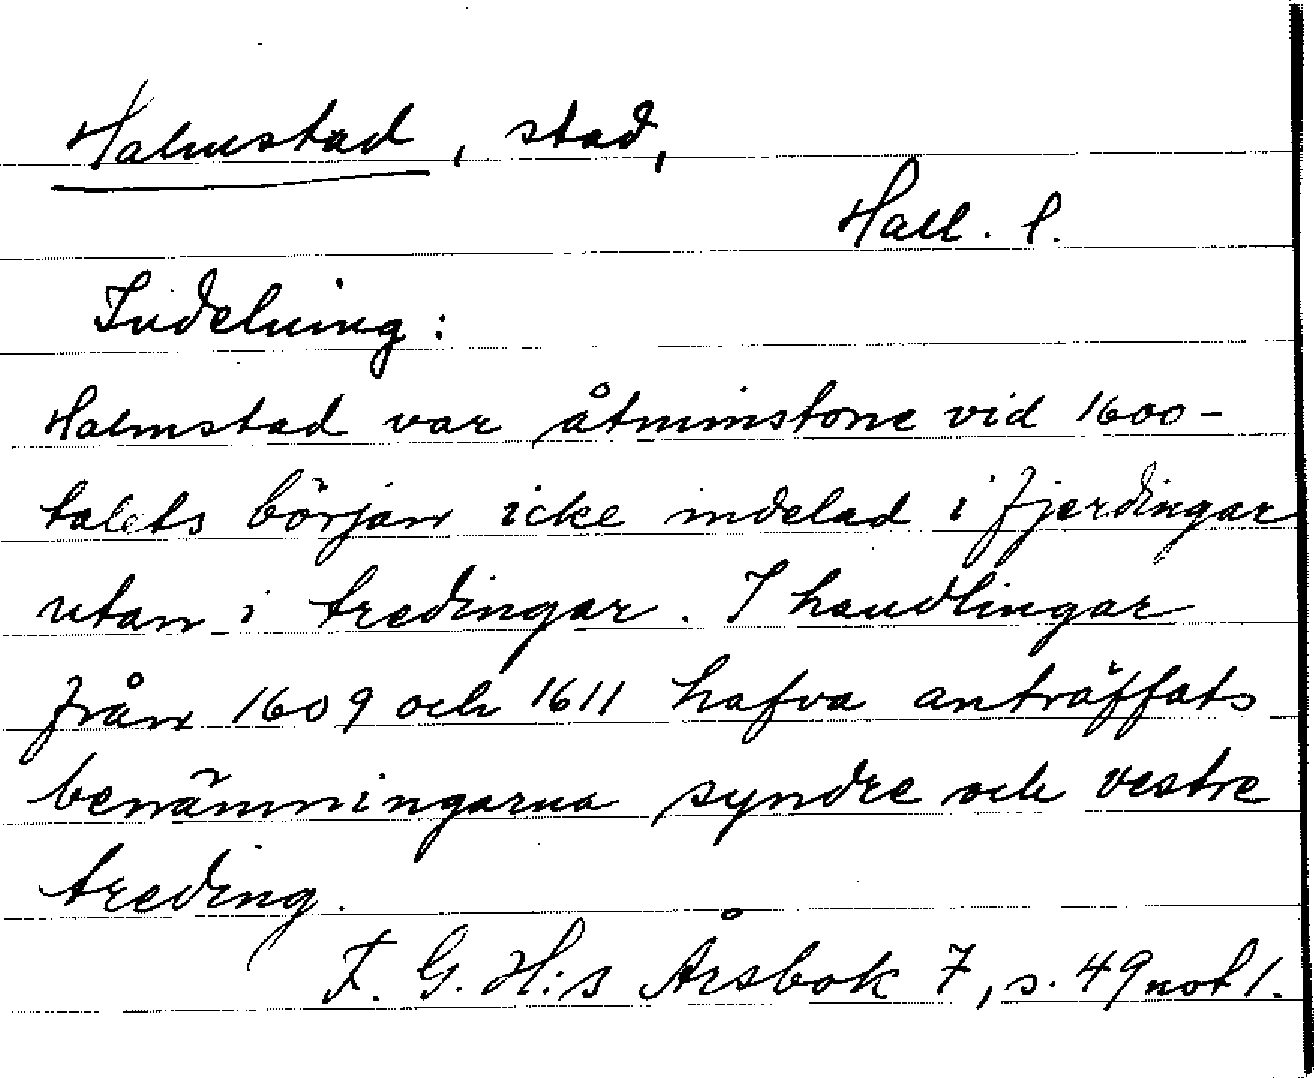 Halmstad, stad,
Hall. l.
Indelning:
Halmstad var åtminstone vid 1600-
talets början icke indelad i fjerdingar
utan i tredingar. I handlingar
från 1609 och 1611 hafva anträffats
benämningarna syndre och vestre
treding.
F. G. H:s Årsbok 7, s. 49 not 1.